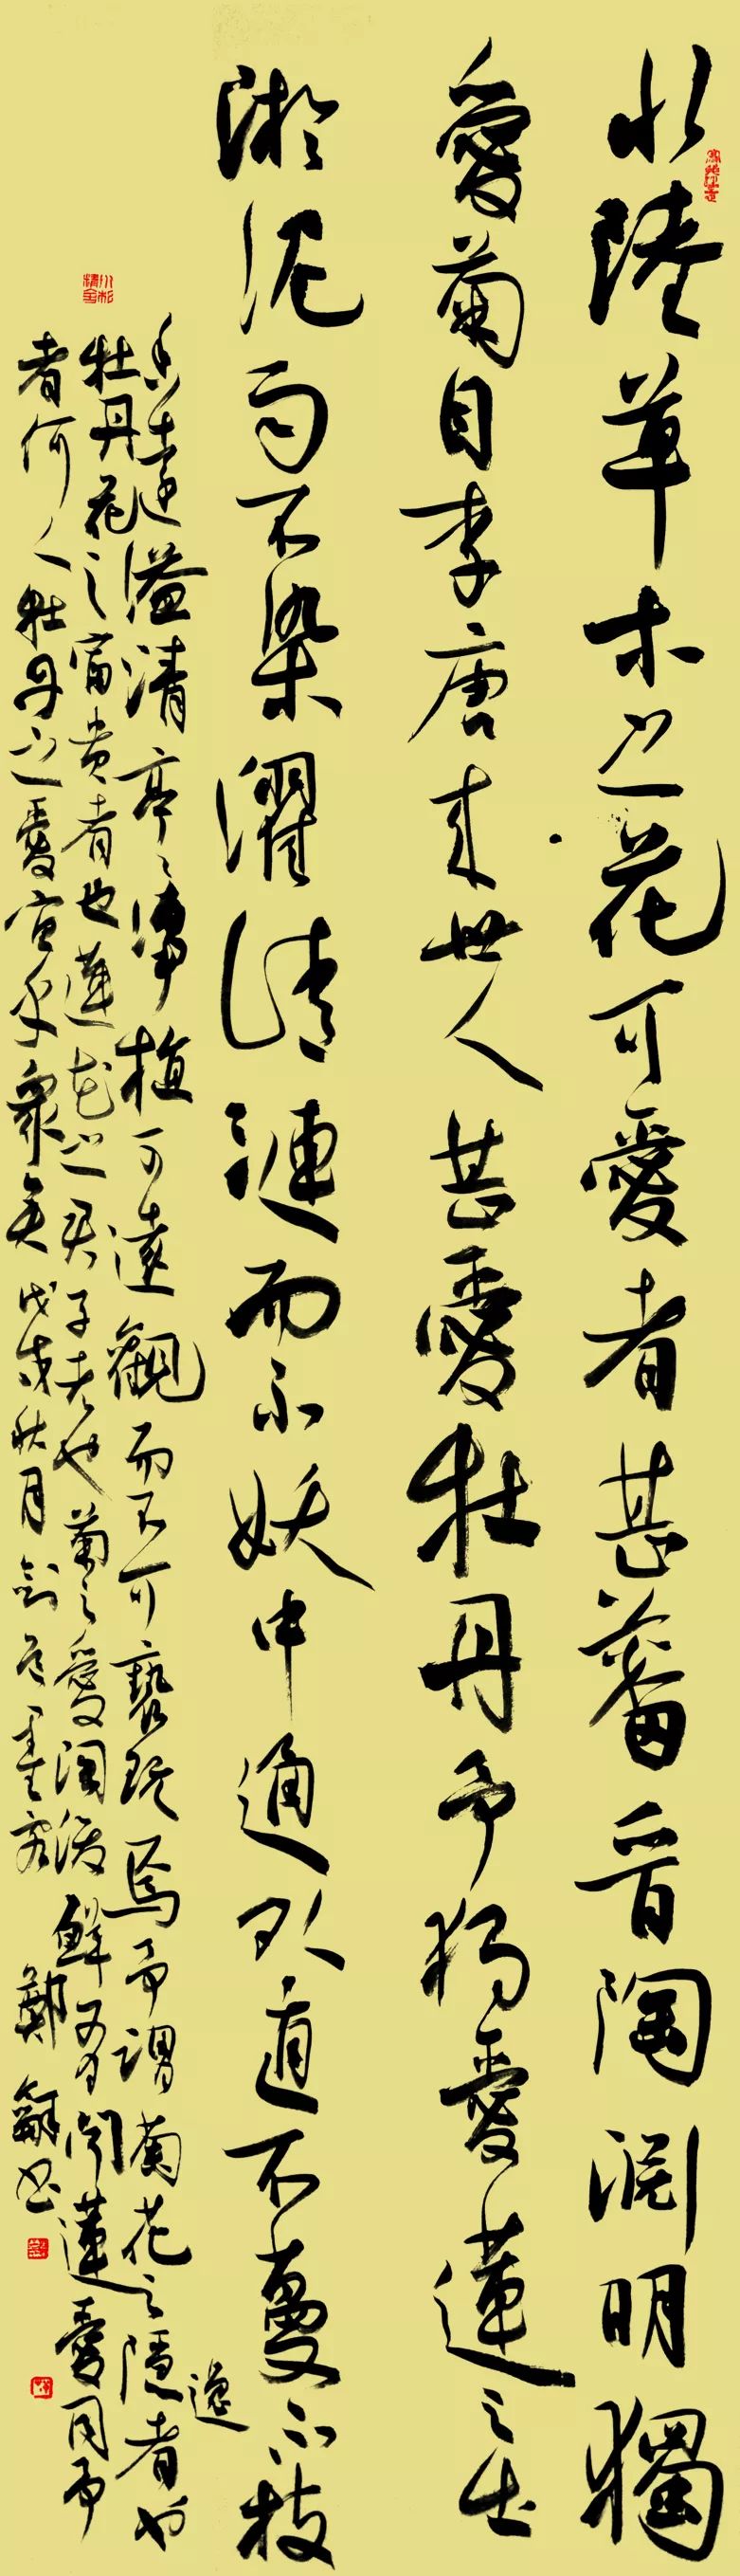 水陸草木之花可愛者甚蕃晋陶渊明獨
愛菊自李唐来世人甚愛牡丹予獨愛蓮之出
淤泥而不染濯清漣而不妖中通外直不蔓不枝
香遠溢清亭亭淨植可遠觀而不可褻玩焉予謂菊花之隱者也
逸
牡丹花之富貴者也蓮花之君子者也菊之愛陶後鮮有聞蓮愛同予
者何人牡丹之愛宜乎衆矣戊戌秋月
鄭龢书